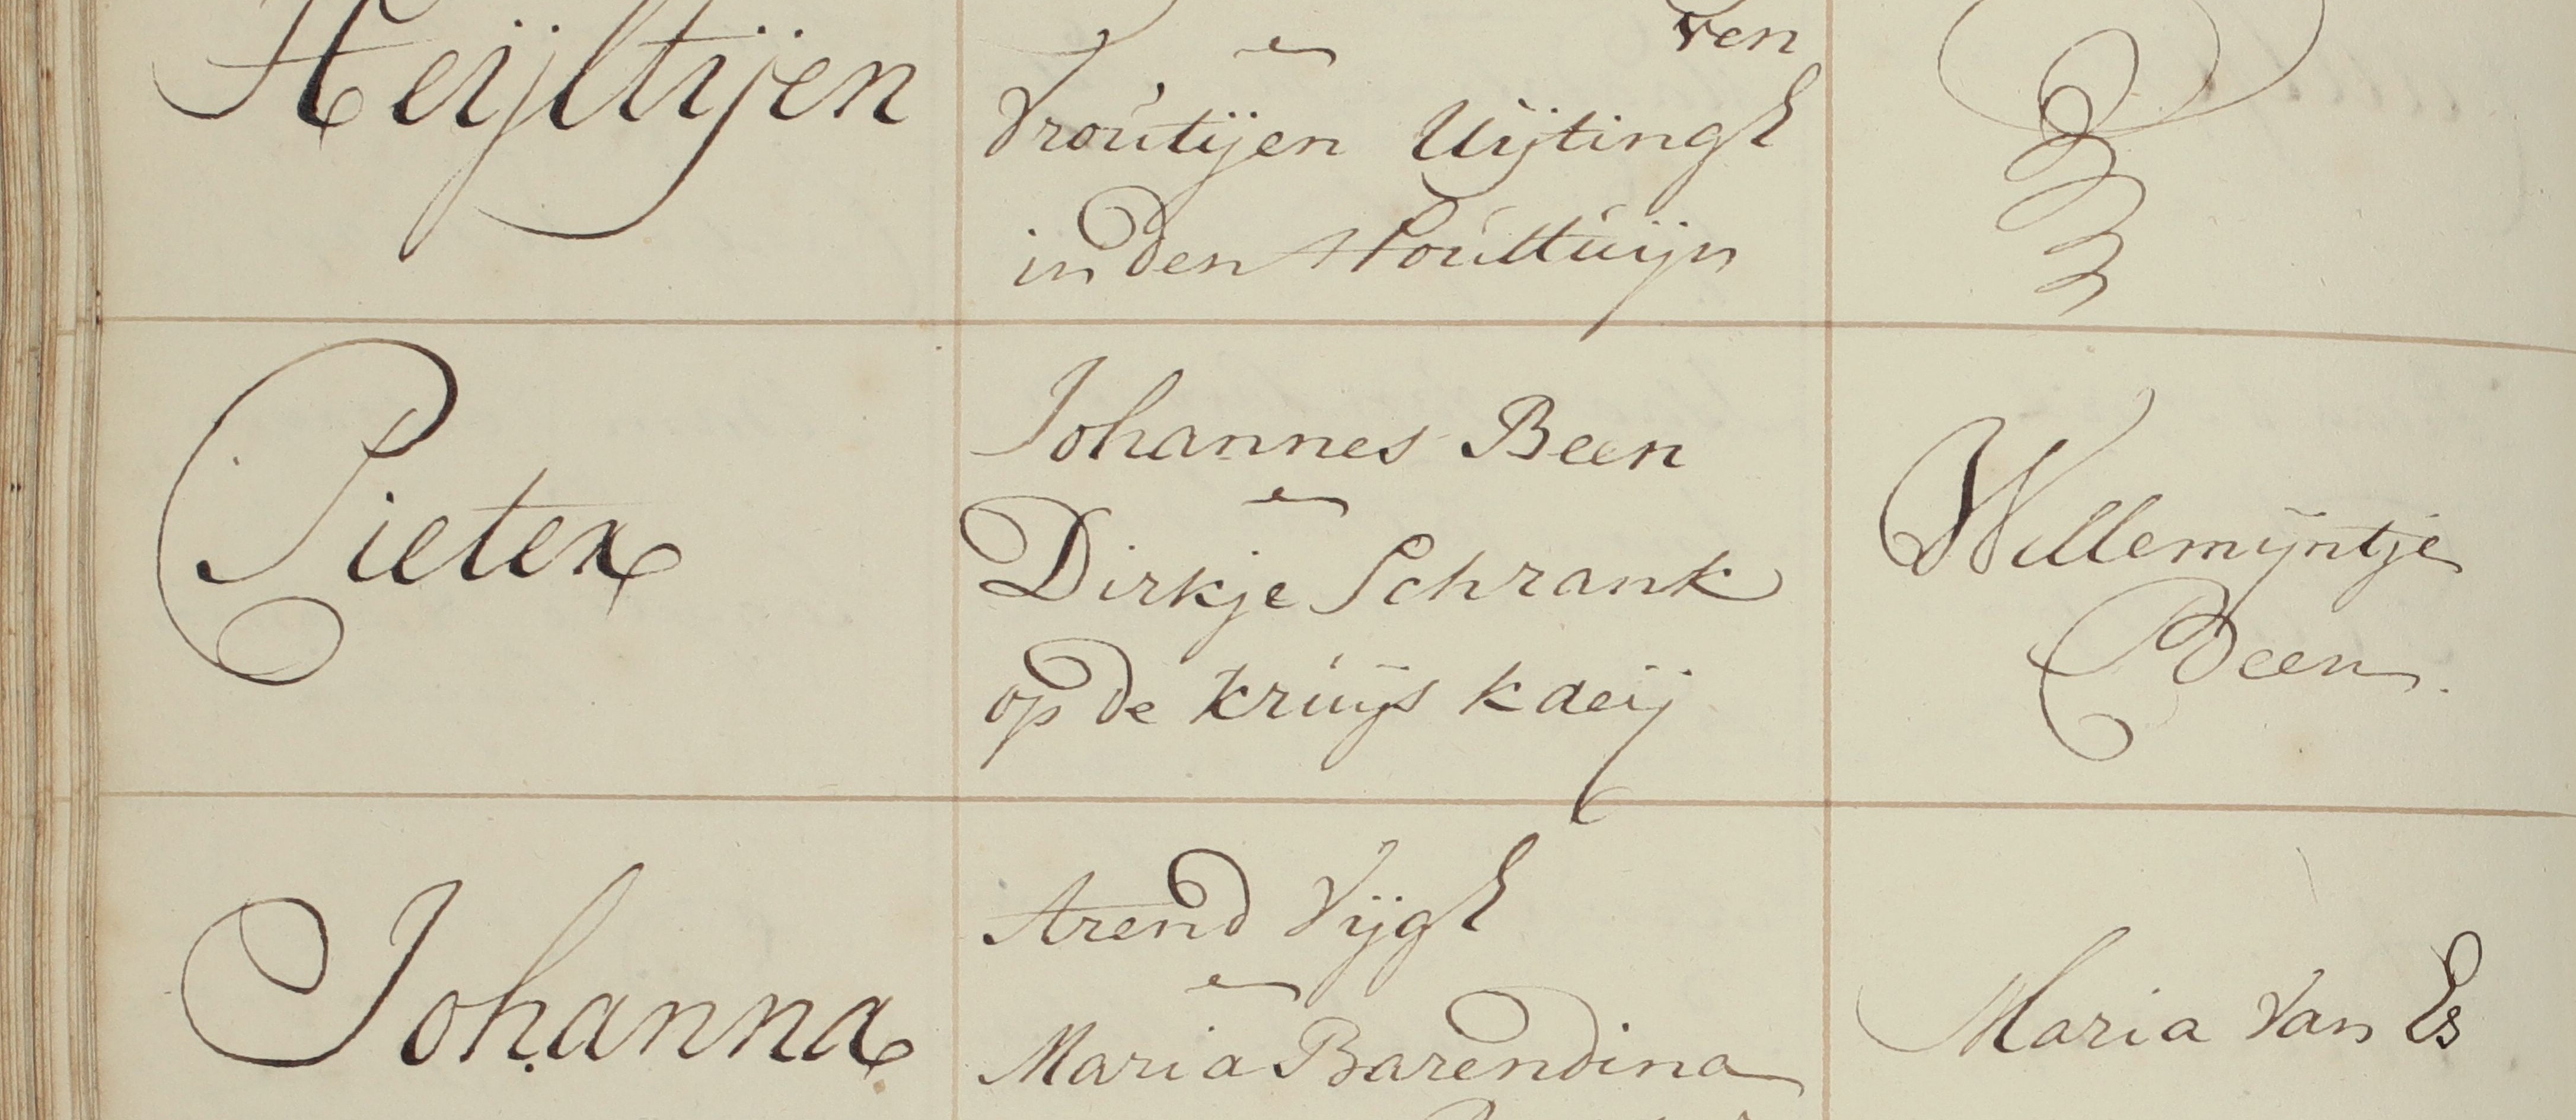 Heijltijen
ven
en
Vroutijen Uijtingh
in den Houttuijn
Pieter
Johannes Been
en
Dirkje Schrank
op de kruijs kaeij
Willemijntje
Been.
Johanna
Arend Vijgh
en
Maria Barendina
Maria Van Es